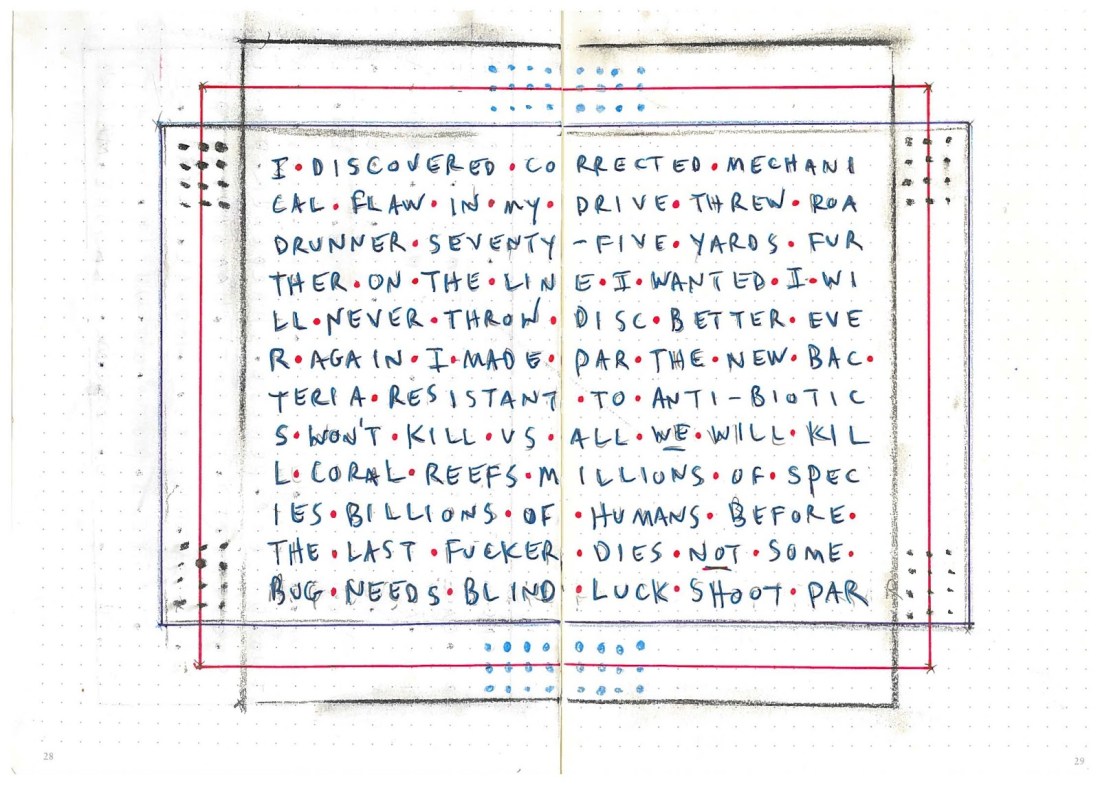 I•DISCOVERED•CORRECTED•MECHANI
CAL•FLAW•IN•MY•DRIVE•THREW•ROA
DRUNNER•SEVENTY-FIVE•YARDS•FUR
THER•ON•THE•LINE•I•WANTED•I•WI
LL•NEVER•THROW•DISC•BETTER•EVE
R•AGAIN•I•MADE•PAR•THE•NEW•BAC•
TERIA•RESISTANT•TO•ANTI-BIOTIC
S•WON'T•KILL•US•ALL•WE•WILL•KIL
L•CORAL•REEFS•MILLIONS•OF•SPEC
IES•BILLIONS•OF•HUMANS•BEFORE•
THE•LAST•FUCKER•DIES•NOT•SOME•
BUG•NEEDS•BLIND•LUCK•SHOOT•PAR
28
29